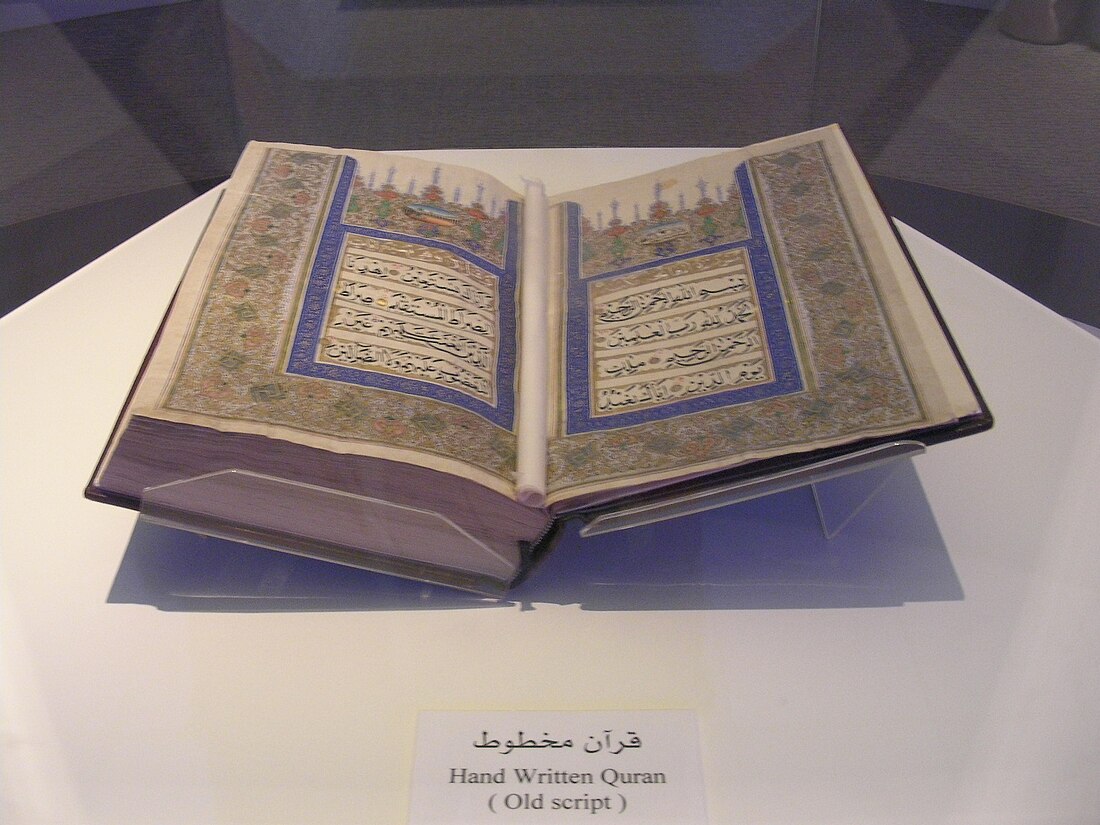 بسم الله الرحمن الرحيم
الحمد لله رب العلمين
الرحمن الرحيم ملك
يوم الدين اياك نعبد
واياك نستعين اهدنا
الصراط المستقيم صراط
الذين انعمت عليهم غير
المغضوب عليهم ولا الضالين
قرآن مخطوط
Hand Written Quran
( Old script )